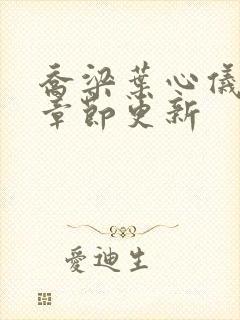 喬梁葉心儀
章節更新
愛迪生